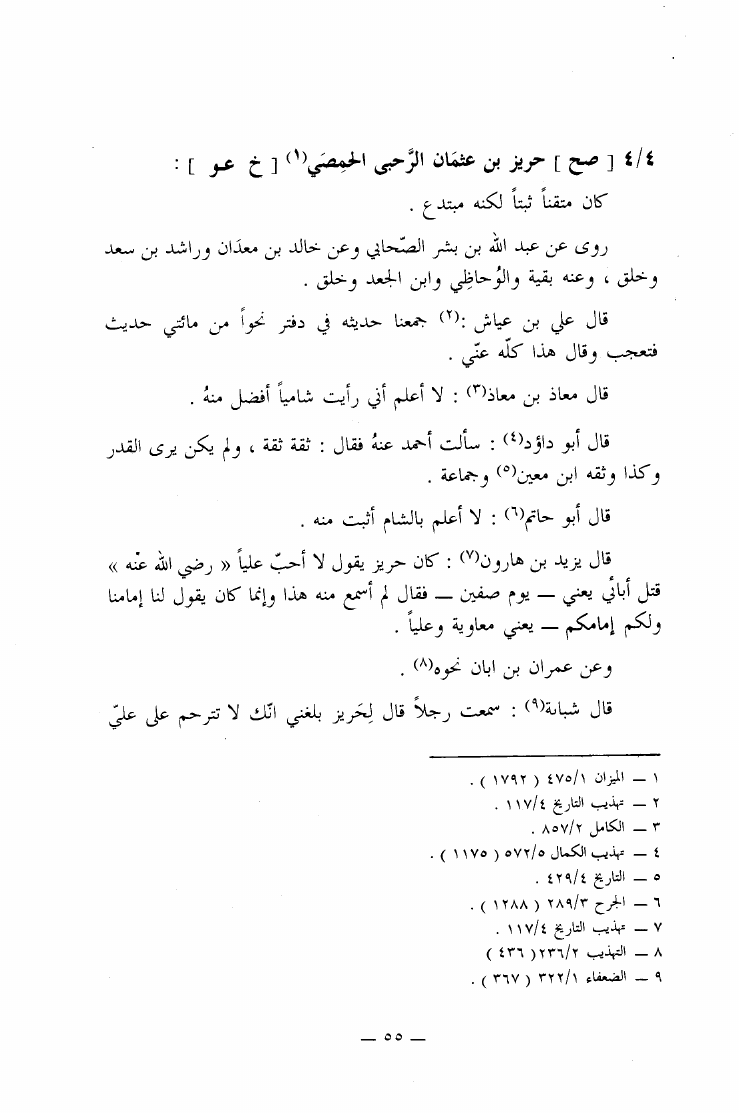 ٤/٤ [ صح ] حريز بن عثمَان الرَّحبى الحمِصَي(١) [ خ عو ] :
كان متقناً ثبتاً لكنه مبتدع .
روى عن عبد الله بن بشر الصّحابي وعن خالد بن معدَان وراشد بن سعد
وخلق ، وعنه بقية والوُحاظِي وابن الجعد وخلق .
قال علي بن عياش :(٢) جمعنا حديثه في دفتر نحواً من مائتي حديث
فتعجب وقال هذا كلّه عنّي .
قال معاذ بن معاذ(٣) : لا أعلم أني رأيت شامياً أفضل منهُ .
قال أبو داؤد(٤) : سألت أحمد عنهُ فقال : ثقة ثقة ، ولم يكن يرى القدر
وكذا وثقه ابن معين(٥) وجماعة .
قال أبو حاتم(٦) : لا أعلم بالشام أثبت منه .
قال يزيد بن هارون(٧) : كان حريز يقول لا أحبّ علياً « رضي الله عنْه »
قتل أبائي يعني — يوم صفين — فقال لم أسمع منه هذا وإنما كان يقول لنا إمامنا
ولكم إمامكم — يعني معاوية وعلياً .
وعن عمران بن ابان نحوه(٨) .
قال شبابة(٩) : سمعت رجلاً قال لِحَريز بلغني انّك لا تترحم على عليّ
١ — الميزان ٤٧٥/١ ( ١٧٩٢ ) .
٢ — تهذيب التاريخ ١١٧/٤ .
٣ — الكامل ٨٥٧/٢ .
٤ — تهذيب الكمال ٥٧٢/٥ ( ١١٧٥ ) .
٥ — التاريخ ٤٢٩/٤ .
٦ — الجرح ٢٨٩/٣ ( ١٢٨٨ ) .
٧ — تهذيب التاريخ ١١٧/٤ .
٨ — التهذيب ٢٣٦/٢ ( ٤٣٦ )
٩ — الضعفاء ٣٢٢/١ ( ٣٦٧ ) .
— ٥٥ —